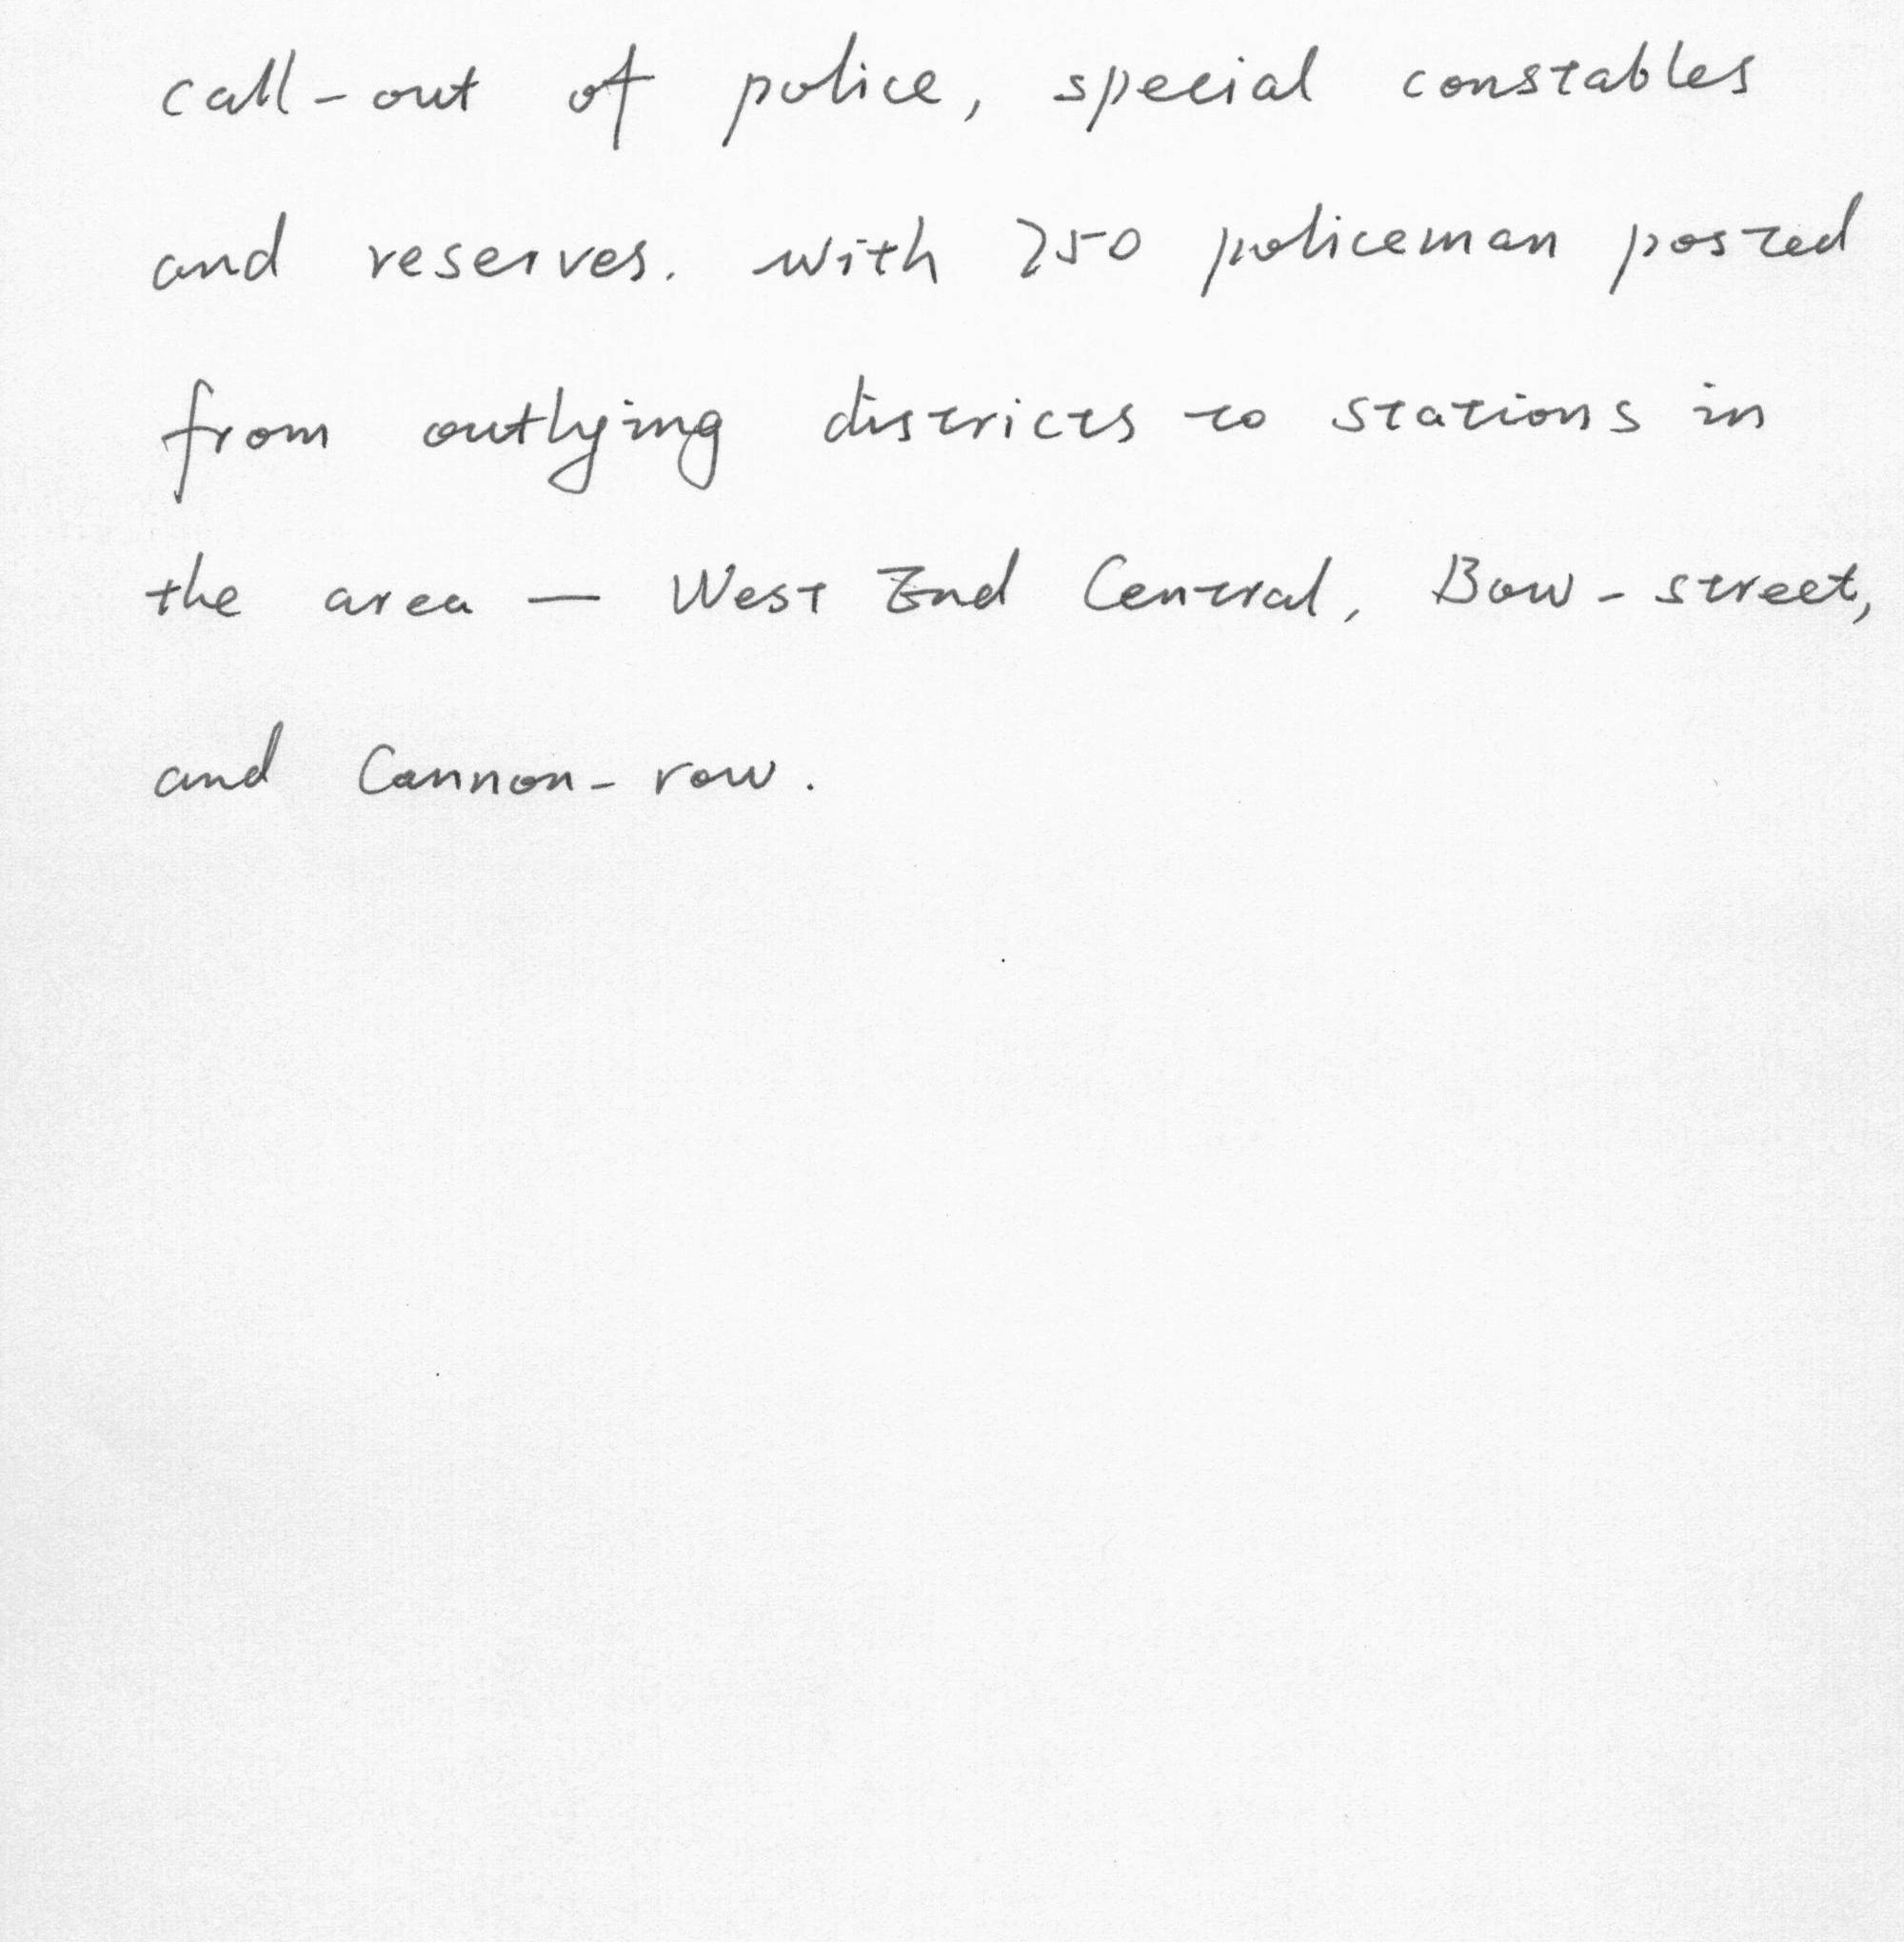 call-out of police, special constables
and reserves. with 250 policeman posted
from outlying districts to stations in
the area — West End Central, Bow-street,
and Cannon-row.